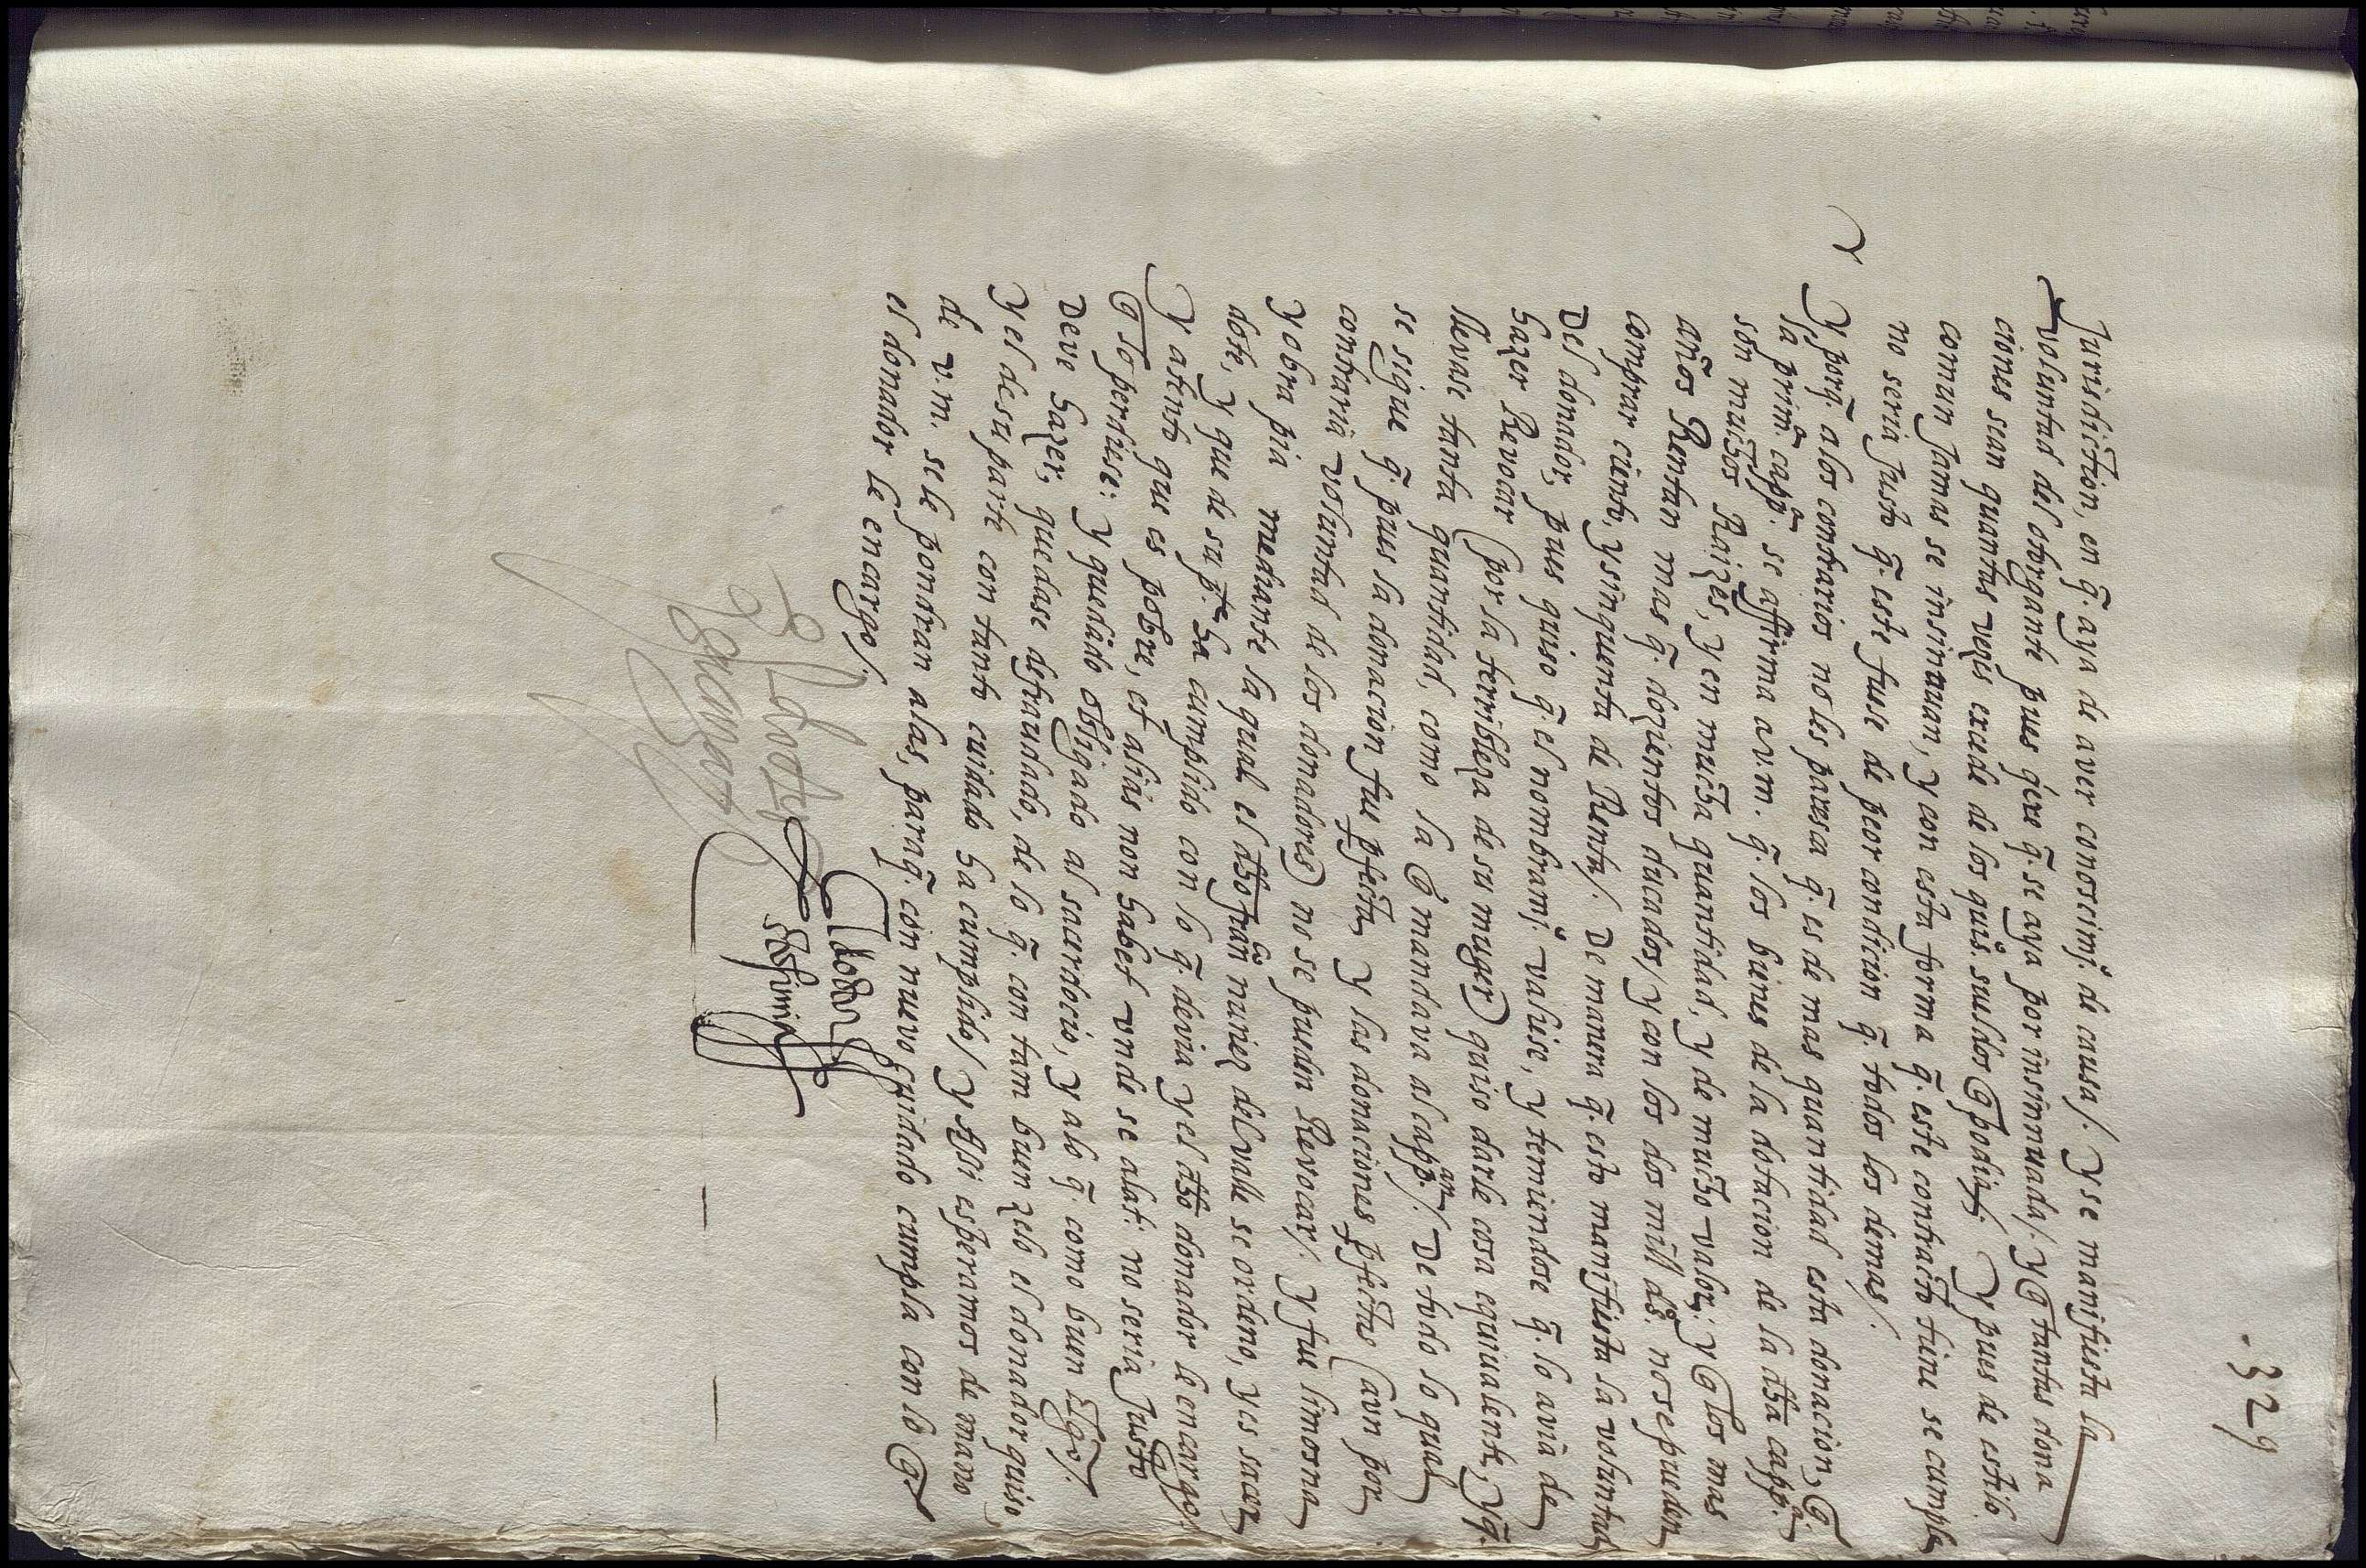 .329
Jurisdiction, en q̃. aya de aver conoscimiº. de causa/. y se manifiesta la
voluntad del otorgante pues q̃ se aya por insinnuada/. y tantas dona
ciones sean quantas vezes excede de los quiºs. sueldos
comun jamas se insinuan, y con esta forma q̃. este contracto tiene se cumpla
no seria justo q̃. este fuese de peor condicion q̃. todos los demas/.
Y porq̃. a los contrarios no les paresca q̃. es de mas quantidad esta donacion,
la primª. cappª. se affirma a v.m. q̃. los bienes de la dotacion de la dha cappª.
son muchos Raizes, y en mucha quantidad, y de mucho valor: y los mas
años Rentan mas q̃. dozientos ducados/ y con los dos mill dºs. no se pueden
comprar ciento, y sinquenta de Renta/. De manera q̃. esto manifiesta la voluntad
Del donador, pues quiso q̃. el nombramiº. valiese, y temiendose q̃. lo avia de
hazer Revocar (por la terribleza de su muger) quiso darle cosa equivalente, y q̃.
llevase tanta quantidad, como la q̃ mandava al cappan/. De todo lo qual
se sigue q̃. pues la donacion fue pfecta y las donaciones pfectas (aun por
contraria voluntad de los donadores) no se pueden Revocar/. Y fue limosna
y obra pia mediante la qual el dho franco nuñez del valle se ordeno, y es sacer
dote, y que de su pte. ha cumplido con lo q̃. devia y el dho donador le encargo/
Y atento que es pobre, et alias non habet unde se alat: no seria justo
perdiese: y quedado obligado al sacerdocio, y a lo q̃. como buen
deve hazer, quedase defraudado, de lo q̃. con tam buen zelo el donador quiso,
y el de su parte con tanto cuidado ha cumplido/ y Assi esperamos de mano
de v.m. se le pondran alas, para q̃. con nuevo cuidado cumpla con lo
el donador le encargo/.